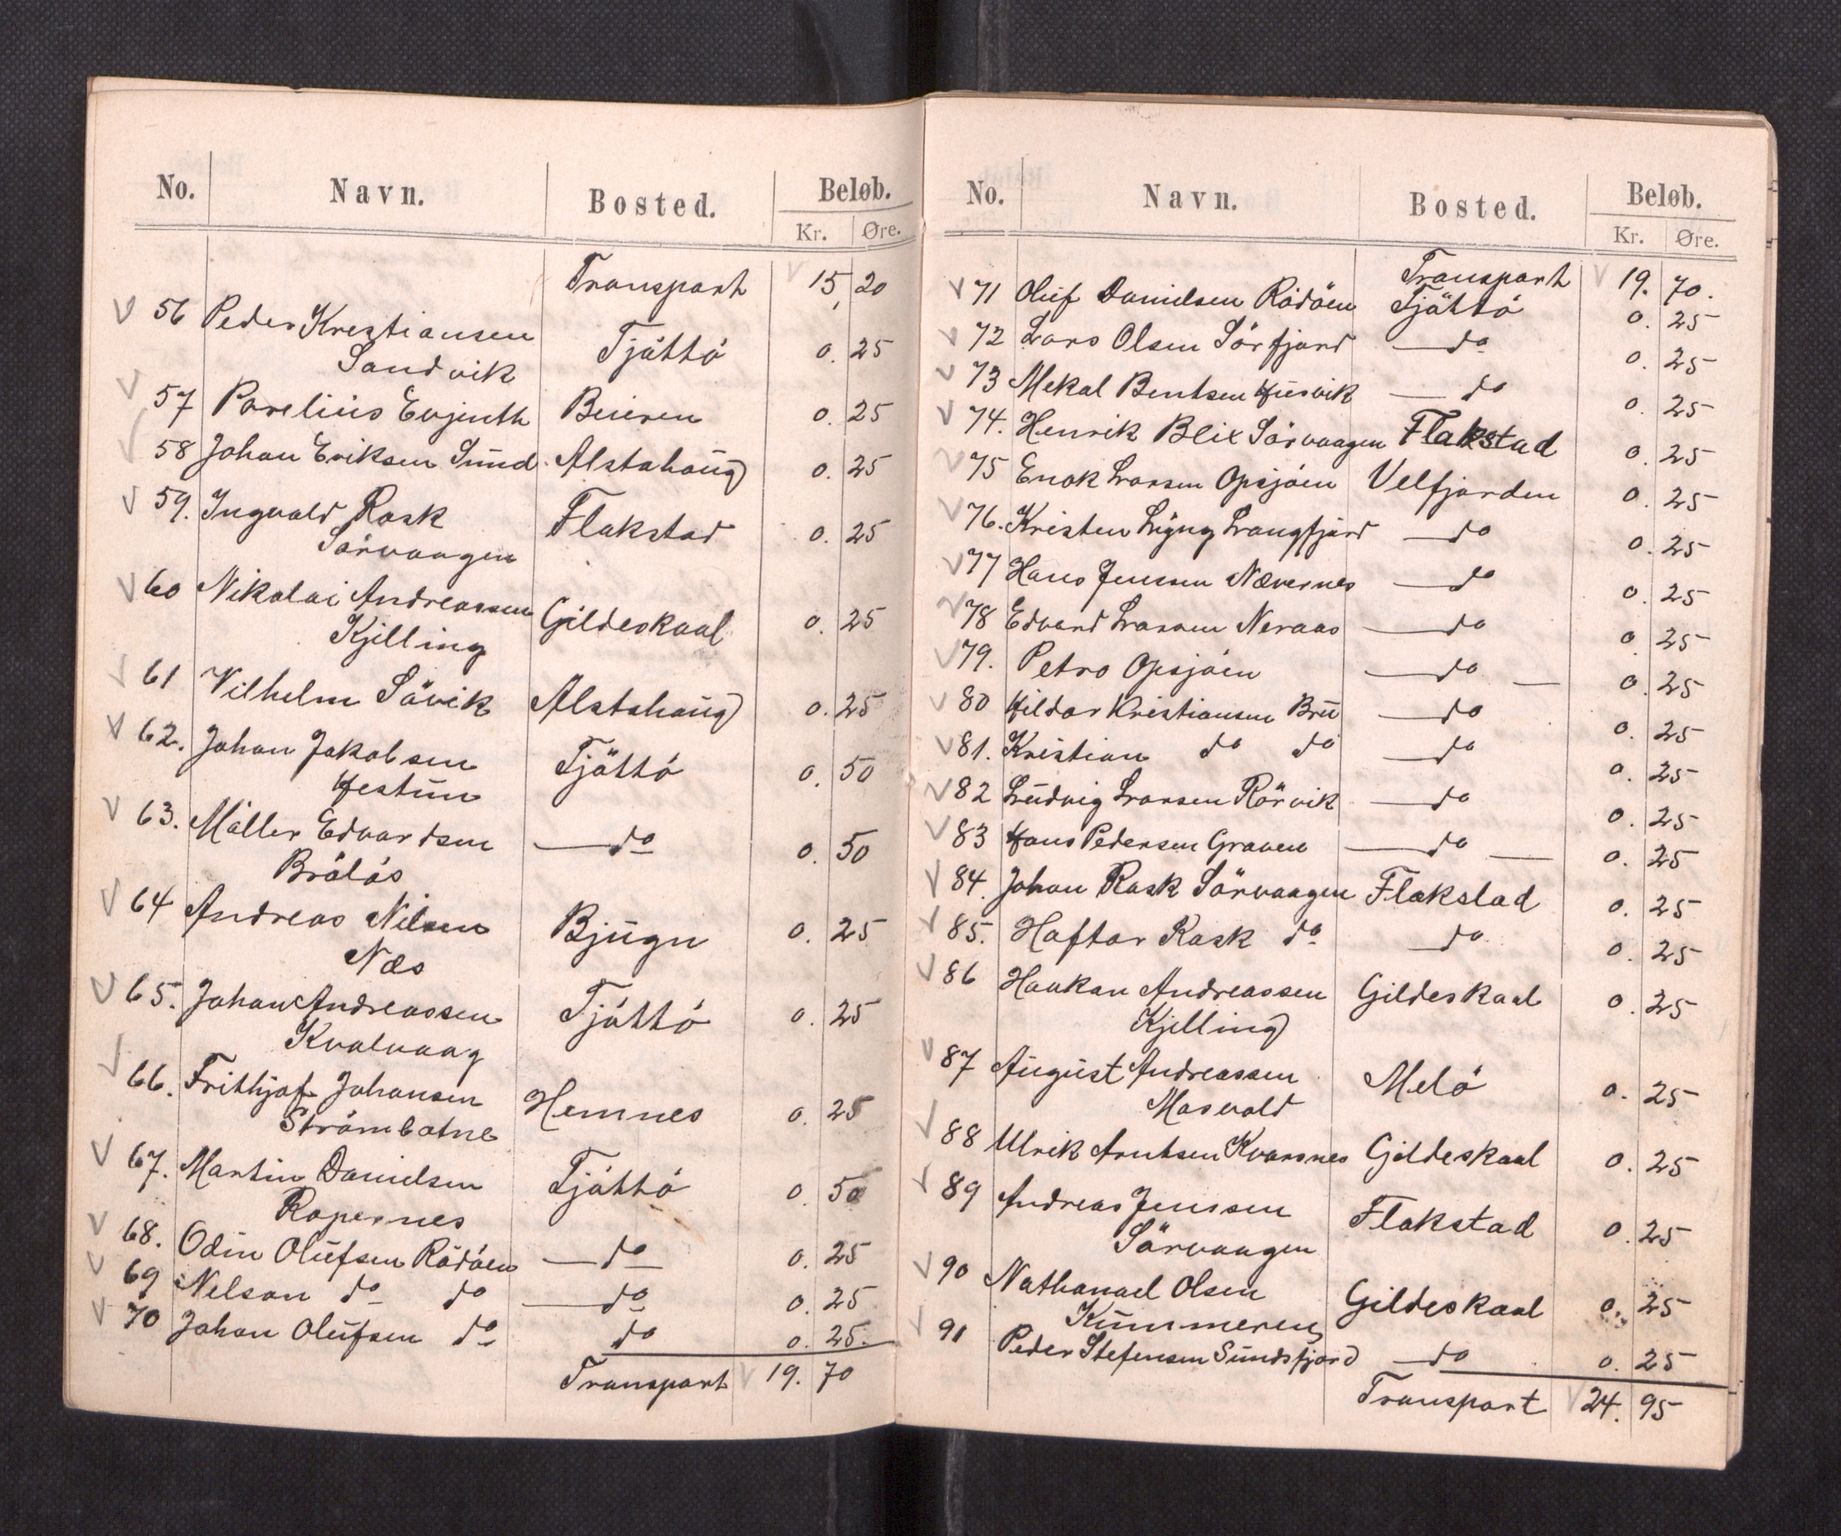 No. Navn. Bosted. Beløb.
Kr. Øre.
Transport 15, 20
56 Peder Kristiansen
Sandvik Tjøttö 0. 25
57 Parelius Evjenth Beieren 0. 25
58 Johan Eriksen Sund. Alstahaug 0. 25
59. Ingvald Rask
Sörvaagen Flakstad 0. 25
60 Nikolai Andreassen
Kjelling Gildeskaal 0. 25
61 Vilhelm Sövik Alstahaug 0. 25
62. Johan Jakobsen
Hestun Tjöttö 0. 50
63. Möller Edvardsen
Brölös —do 0. 50
64 Andreas Nilsen
Næs Bjugn 0. 25
65. Johan Andreassen
Kvalvaag Tjöttö 0. 25
66. Frithjof Johansen
Strömbotne Hemnes 0. 25
67. Martin Danielsen
Ropernes Tjöttö 0. 50
68. Odin Olufsen Rödöen —do— 0. 25
69 Nelson do do —do 0. 25
70 Johan Olufsen do do 0. 25.
Transport 19. 70
No. Navn. Bosted. Beløb.
Kr. Øre.
Transport 19. 70.
71 Oluf Danielsen Rödöen Tjöttö 0. 25
72 Lars Olsen Sörfjord —do 0. 25
73 Mekal Bentsen Husvik —do 0. 25
74. Henrik Blix Sörvaagen Flakstad 0. 25
75 Enok Larsen Opsjöen Velfjorden 0. 25
76. Kristen Lyng Langfjord —do 0. 25
77 Hans Jenssen Nævernes —do 0. 25
78 Edvard Larsen Neraas —do 0. 25
79. Petro Opsjöen —do — 0. 25
80 Hildor Kristiansen Bru —do 0. 25
81. Kristian do do —do 0. 25
82 Ludvig Larsen Rörvik —do 0. 25
83 Hans Pedersen Graven —do — 0. 25
84. Johan Rask Sörvaagen Flakstad 0. 25
85. Haftor Rask do —do 0. 25
86 Haakan Andreassen
Kjelling Gildeskaal 0. 25
87 August Andreassen
Masvold Melö 0. 25
88 Ulrik Arntsen Kvarsnes Gildeskaal 0. 25
89 Andreas Jenssen
Sörvaagen Flakstad 0. 25
90 Nathanael Olsen
Kunmeren Gildeskaal 0. 25
91 Peder Stefensen Sundsfjord —do 0. 25
Transport 24. 95